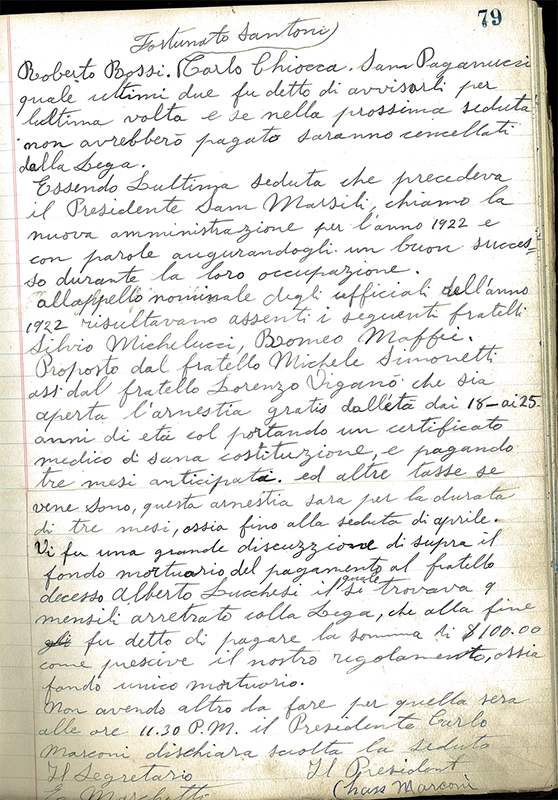 79
Fortunato Santoni
Roberto Rossi. Carlo Chiocca. Sam Paganucci
quale ultimi due fu detto di avvisarli per
lultima volta e se nella prossima seduta
non avrebbero pagato saranno cencellati
dalla Lega.
Essendo Lultima seduta che precedeva
il Presidente Sam Marsili, chiamo la
nuova amministrazione per l'anno 1922 e
con parole augurandogli un buon succes=
so durante la loro occupazione.
allappello nominale degli ufficiali dell'anno
1922 risultavano assenti i seguenti fratelli
Silvio Michelucci, Romeo Maffei.
Proposto dal fratello Michele Simonetti
ass. dal fratello Lorenzo Viganò che sia
aperta l'arnestia gratis dall'età dai 18-ai 25-
anni di età col portando un certificato
medico di sana costituzione, e pagando
tre mesi anticipati. ed altre tasse se
vene sono, questa arnestia sara per la durata
di tre mesi, ossia fino alla seduta di aprile.
Vi fu una grande discuzzione di supra il
fondo mortuario del pagamento al fratello
decesso Alberto Lucchesi il quale si trovava 9
mensili arretrato colla Lega, che alla fine
fu detto di pagare la somma di $100.00
come prescive il nostro regolamento, ossia
fondo unico mortuario.
Non avendo altro da fare per quella sera
alle ore 11.30 P.M. il Presidente Carlo
Marconi dischiara sciolta la seduta
Il Segretario Il President
Marchetti Chass Marconi